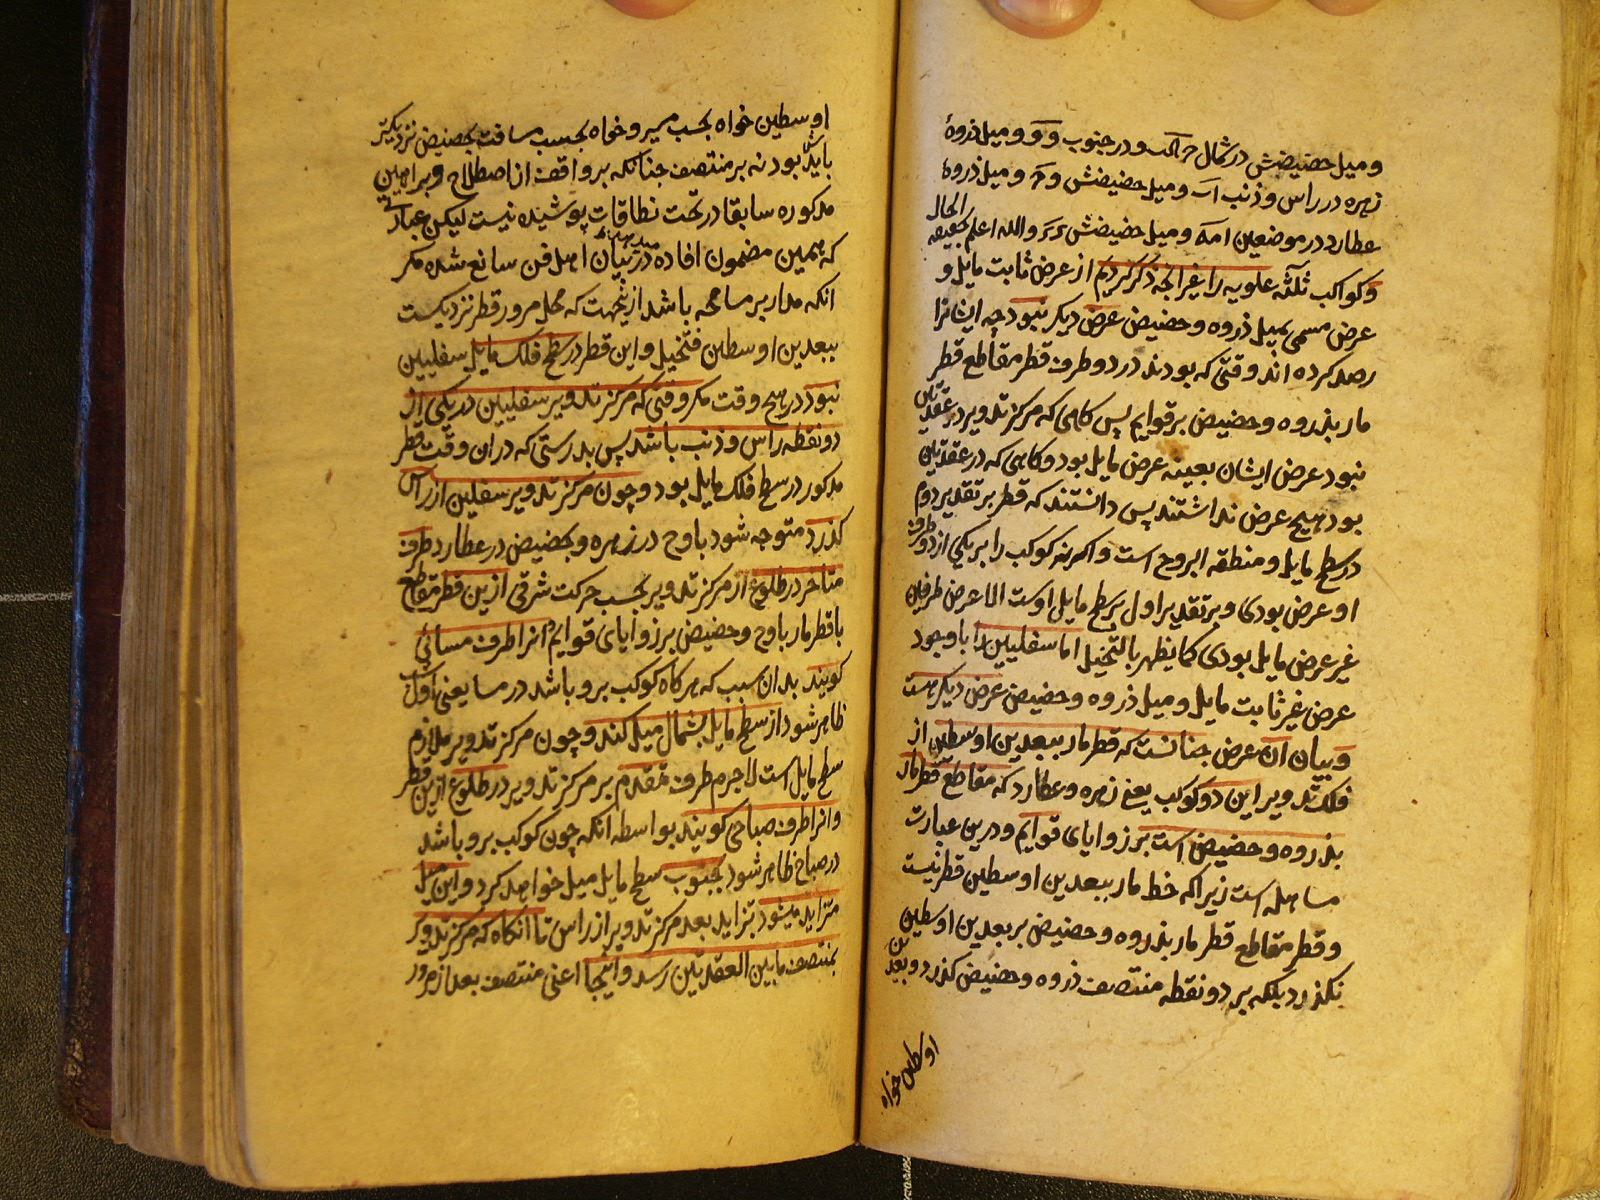 و میل حضیضش در شمال و در جنوب و میل ذروهٔ
زهره در راس و ذنب و میل حضیضش و میل ذروهٔ
عطارد در موضعین و میل حضیضش والله اعلم بحقیقه الحال
و کواکب ثلثه علویه را غیر انچه ذکر کردیم از عرض ثابت مایل و
عرض مسمی بمیل ذروه و حضیض عرض دیکر نبود چه ایشانرا
رصد کرده اند وقتی که بودند در دو طرف قطر مقاطع قطر
مار بذروه و حضیض بر قوایم پس کاهی که مرکز تدویر در عقدتین
نبود عرض ایشان بعینه عرض مایل بود و کاهی که در عقدتین
بود هیچ عرض نداشتند پس دانستند که قطر بر تقدیر دوم
در سطح مایل و منطقه البروج است و اکرنه کوکب را بر یکی از دو طرف
او عرض بودی و بر تقدیر اول بر سطح مایل اوست الا عرض طرفین
غیر عرض مایل بودی کما یظهر بالتخیل اما سفلیین را با وجود
عرض غیر ثابت مایل و میل ذروه و حضیض عرض دیکر هست
و بیان آن عرض جنانست که قطر مار ببعدین اوسطین از
فلک تدویر این دو کوکب یعنی زهره و عطارد که مقاطع قطر مار
بذروه و حضیض است بر زوایای قوایم و درین عبارت
مساهله است زیرا که خط مار ببعدین اوسطین قطر نیست
و قطر مقاطع قطر مار بذروه و حضیض بر بعدین اوسطین
نکذرد بلکه بر دو نقطه منتصف ذروه و حضیض کذرد و بعدین
اوسطین خواه
اوسطین خواه بحسب میر و خواه بحسب مسافت بحضیض نزدیکتر
باشد بود نه بر منتصف جنانکه بر واقف از اصطلاح و براهین
مذکوره سابقا در تحت نطاقات پوشیده نیست لیکن عباراتی
که بهمین مضمون افاده در میان اهل فن سانع شده مکر
انکه مدار بر مسامحه باشد ازینجهت که محل مرور قطر نزدیکست
ببعدین اوسطین فتخیل و این قطر در سطح فلک مایل سفلیین
نبود در هیچ وقت مکر وقتی که مرکز تدویر سفلیین در یکی از
دو نقطه راس و ذنب باشد پس بدرستی که در ان وقت قطر
مذکور در سطح فلک مایل بود و چون مرکز تدویر سفلین از راس
کذرد متوجه شود باوج در زهره و بحضیض در عطارد طرف
متاخر در طلوع از مرکز تدویر بحسب حرکت شرقی ازین قطر مقاطع
با قطر مار باوج و حضیض بر زوایای قوایم و انرا طرف مسائی
کویند بدان سبب که هرکاه کوکب برو باشد در مسا یعنی اول شب
ظاهر شود از سطح مایل بشمال میل کند و چون مرکز تدویر ملازم
سطح مایل است لاجرم طرف متقدم بر مرکز تدویر در طلوع ازین قطر
و انرا طرف صباحی کویند بواسطه انکه چون کوکب برو باشد
در صباح ظاهر شود بجنوب سطح مایل میل خواهد کرد و این میل
متزاید میشود بتزاید بعد مرکز تدویر از راس تا انکاه که مرکز تدویر
بمنتصف مابین العقدتین رسد و اینجا اعنی منتصف بعد از مرور